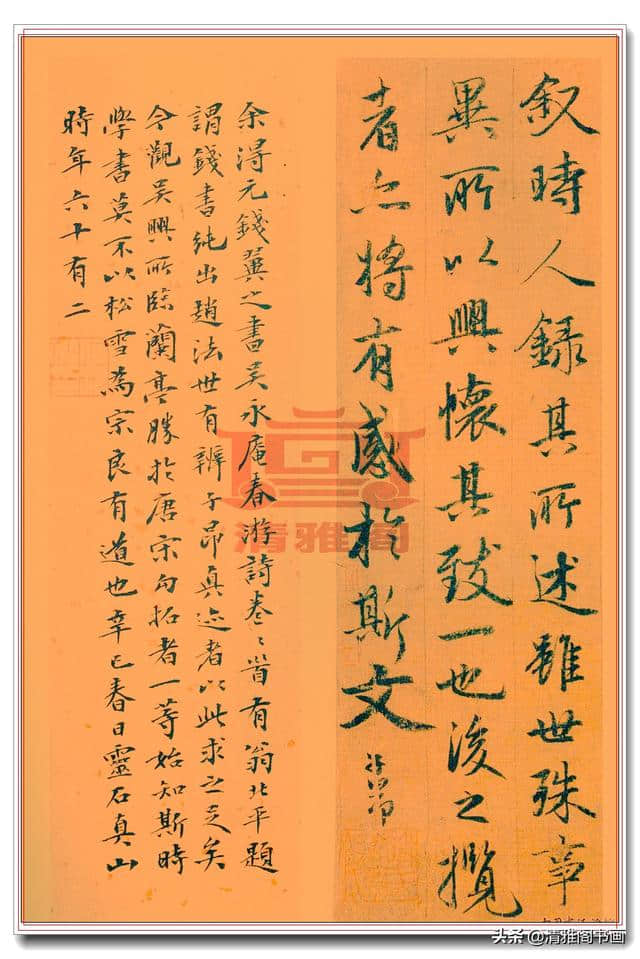 叙時人録其所述雖世殊事
異所以興懷其致一也後之攬
者亦將有感於斯文
子昂
余得元錢翼之書吴永庵春游詩卷〻首有翁北平題
謂錢書純出趙法世有辨子昂真迹者以此求之足矣
今觀吴興所臨蘭亭勝於唐宋勾拓者一等始知斯時
學書莫不以松雪為宗良有道也辛巳春日靈石真山
時年六十有二
清雅阁
头条 @清雅阁书画